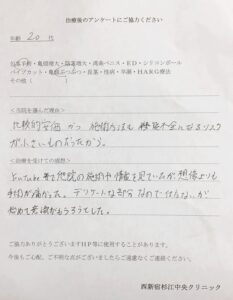 治療後のアンケートにご協力ください
年齢 20 代
包茎手術・亀頭増大・陰茎増大・真珠ペニス・ED・シリコンボール
パイプカット・亀頭ぶつぶつ・長茎・性病・早漏・HARG療法
その他（　　　　　）
＜当院を選んだ理由＞
比較的安価 かつ 施術方法も 機能不全になるリスク
が小さいものだったから。
＜治療を受けての感想＞
Youtube 等で他院の施術中 情報を見ていたが 想像よりも
手術が痛かった。デリケートな部分なので仕方ないが
始めて 意識がもうろうとした。
ご協力ありがとうございますHP等に使用することがあります。
今後もご心配、ご不明な点がございましたらご遠慮なくご連絡ください。
西新宿杉江中央クリニック